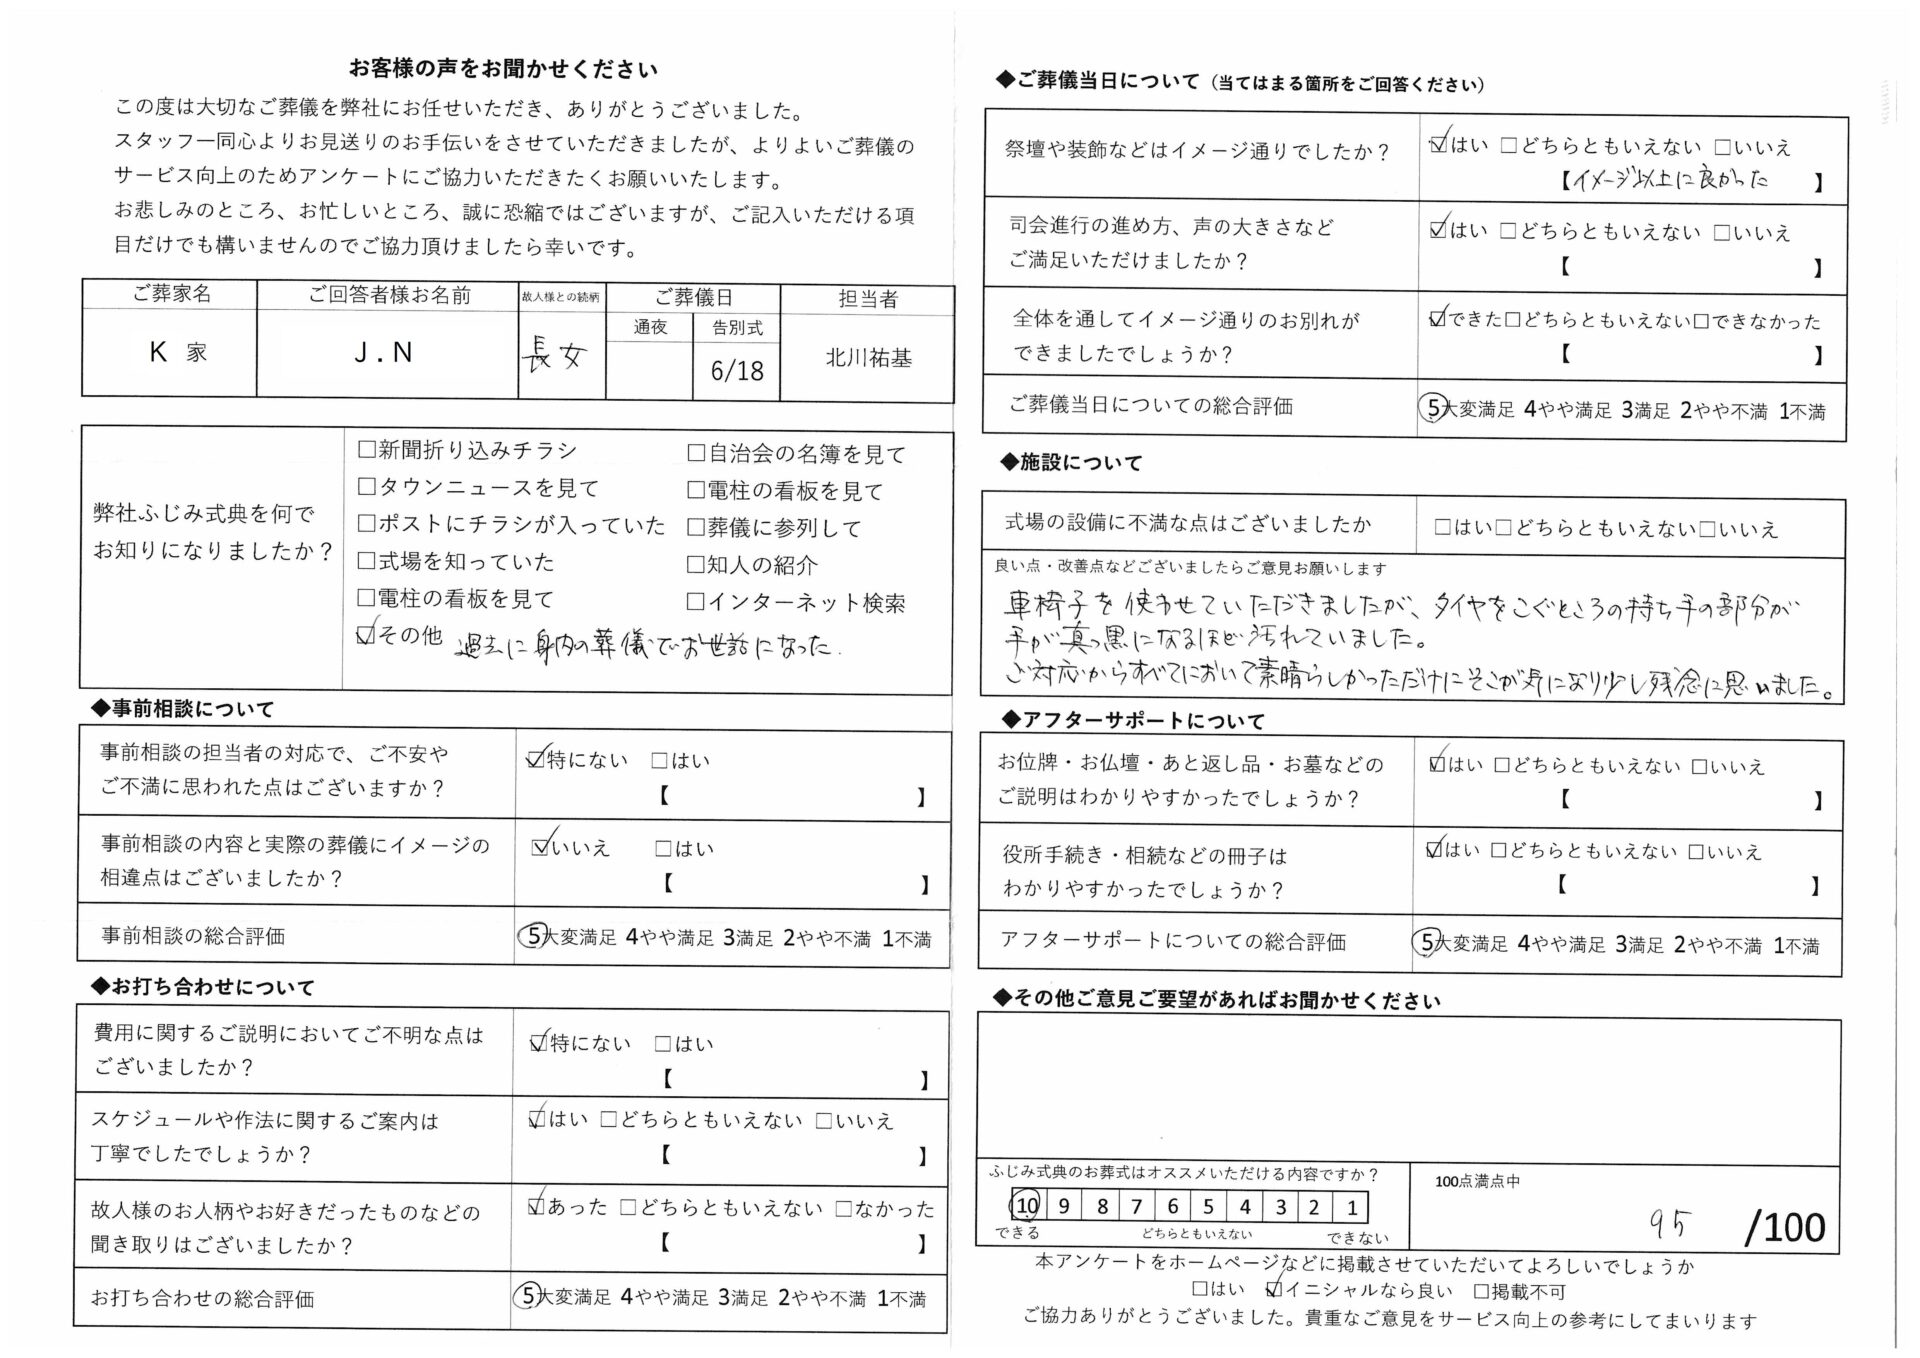 お客様の声をお聞かせください
この度は大切なご葬儀を弊社にお任せいただき、ありがとうございました。
スタッフ一同心よりお見送りのお手伝いをさせていただきましたが、よりよいご葬儀の
サービス向上のためアンケートにご協力いただきたくお願いいたします。
お悲しみのところ、お忙しいところ、誠に恐縮ではございますが、ご記入いただける項
目だけでも構いませんのでご協力頂けましたら幸いです。
ご葬家名 ご回答者様お名前 故人様との続柄 ご葬儀日 担当者
通夜 告別式
K 家 J.N 長女 6/18 北川祐基
弊社ふじみ式典を何で
お知りになりましたか？
□新聞折り込みチラシ □自治会の名簿を見て
□タウンニュースを見て □電柱の看板を見て
□ポストにチラシが入っていた □葬儀に参列して
□式場を知っていた □知人の紹介
□電柱の看板を見て □インターネット検索
☑その他 過去に身内の葬儀でお世話になった.
◆事前相談について
事前相談の担当者の対応で、ご不安や
ご不満に思われた点はございますか？
☑特にない □はい
【 】
事前相談の内容と実際の葬儀にイメージの
相違点はございましたか？
☑いいえ □はい
【 】
事前相談の総合評価 ⑤大変満足 4やや満足 3満足 2やや不満 1不満
◆お打ち合わせについて
費用に関するご説明においてご不明な点は
ございましたか？
☑特にない □はい
【 】
スケジュールや作法に関するご案内は
丁寧でしたでしょうか？
☑はい □どちらともいえない □いいえ
【 】
故人様のお人柄やお好きだったものなどの
聞き取りはございましたか？
☑あった □どちらともいえない □なかった
【 】
お打ち合わせの総合評価 ⑤大変満足 4やや満足 3満足 2やや不満 1不満
◆ご葬儀当日について（当てはまる箇所をご回答ください）
祭壇や装飾などはイメージ通りでしたか？
☑はい □どちらともいえない □いいえ
【イメージ以上に良かった 】
司会進行の進め方、声の大きさなど
ご満足いただけましたか？
☑はい □どちらともいえない □いいえ
【 】
全体を通してイメージ通りのお別れが
できましたでしょうか？
☑できた□どちらともいえない□できなかった
【 】
ご葬儀当日についての総合評価 ⑤大変満足 4やや満足 3満足 2やや不満 1不満
◆施設について
式場の設備に不満な点はございましたか □はい□どちらともいえない□いいえ
良い点・改善点などございましたらご意見お願いします
車椅子を使わせていただきましたが、タイヤをこぐところの持ち手の部分が
手が真っ黒になるほど汚れていました。
ご対応からすべてにおいて素晴らしかっただけにそこが気になり少し残念に思いました。
◆アフターサポートについて
お位牌・お仏壇・あと返し品・お墓などの
ご説明はわかりやすかったでしょうか？
☑はい □どちらともいえない □いいえ
【 】
役所手続き・相続などの冊子は
わかりやすかったでしょうか？
☑はい □どちらともいえない □いいえ
【 】
アフターサポートについての総合評価 ⑤大変満足 4やや満足 3満足 2やや不満 1不満
◆その他ご意見ご要望があればお聞かせください
ふじみ式典のお葬式はオススメいただける内容ですか？
⑩ 9 8 7 6 5 4 3 2 1
できる どちらともいえない できない
100点満点中
95 /100
本アンケートをホームページなどに掲載させていただいてよろしいでしょうか
□はい ☑イニシャルなら良い □掲載不可
ご協力ありがとうございました。貴重なご意見をサービス向上の参考にしてまいります